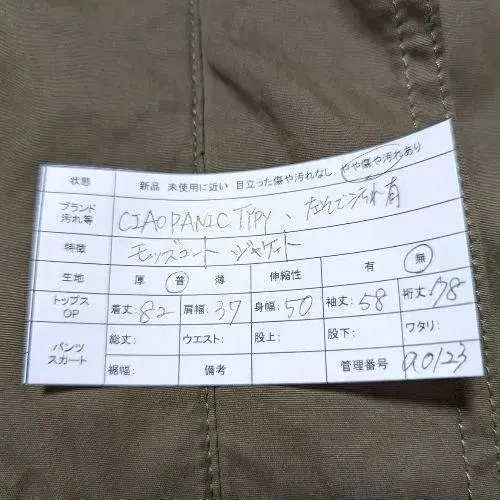 状態 新品 未使用に近い 目立った傷や汚れなし やや傷や汚れあり
ブランド 汚れ等 CIAOPANIC TYPY、左そで汚れ有
特徴 モッズコート ジャケット
生地 厚 普 薄 伸縮性 有 無
トップス OP 着丈:82 肩幅:37 身幅:50 袖丈:58 裄丈:78
パンツ スカート 総丈: ウエスト: 股上: 股下: ワタリ:
裾幅: 備考 管理番号 a0123